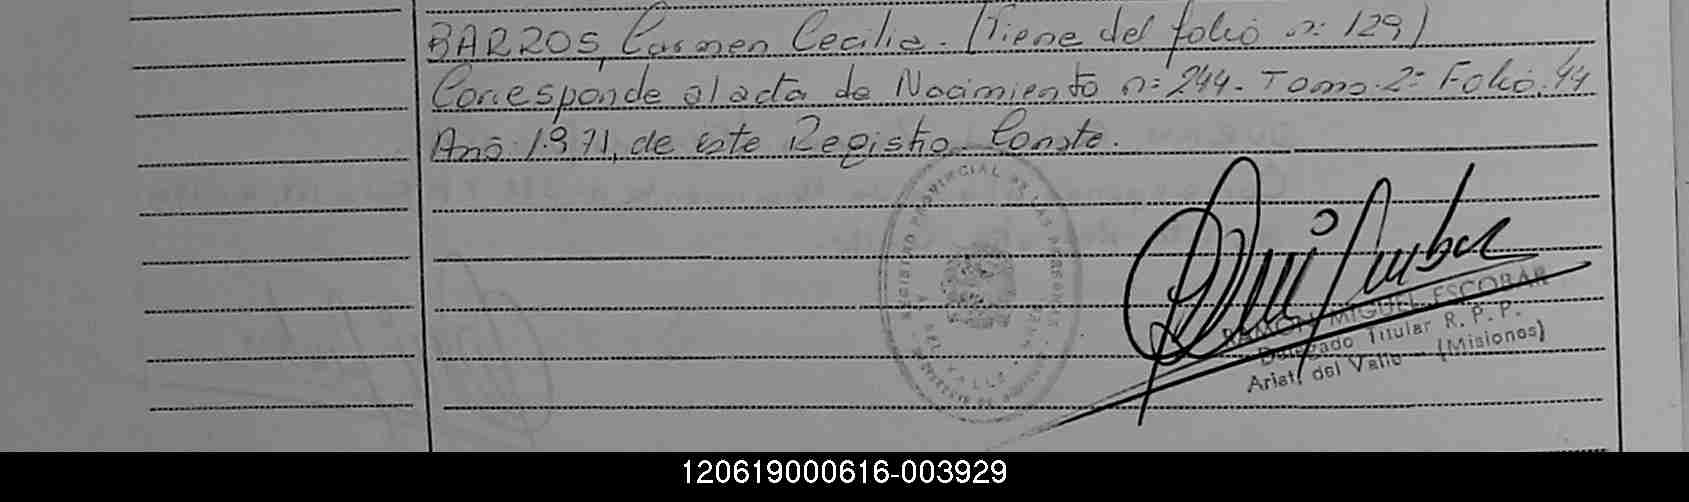 BARROS, Carmen Cecilia. (Viene del folio n: 129)
Corresponde al acta de Nacimiento n: 244. Tomo. 2º Folio. 44
Año 1.971, de este Registro. Conste.
REGISTRO PROVINCIAL DE LAS PERSONAS
A. DEL VALLE
RAMON MIGUEL ESCOBAR
Delegado Titular R. P. P.
Arist. del Valle - (Misiones)
120619000616-003929